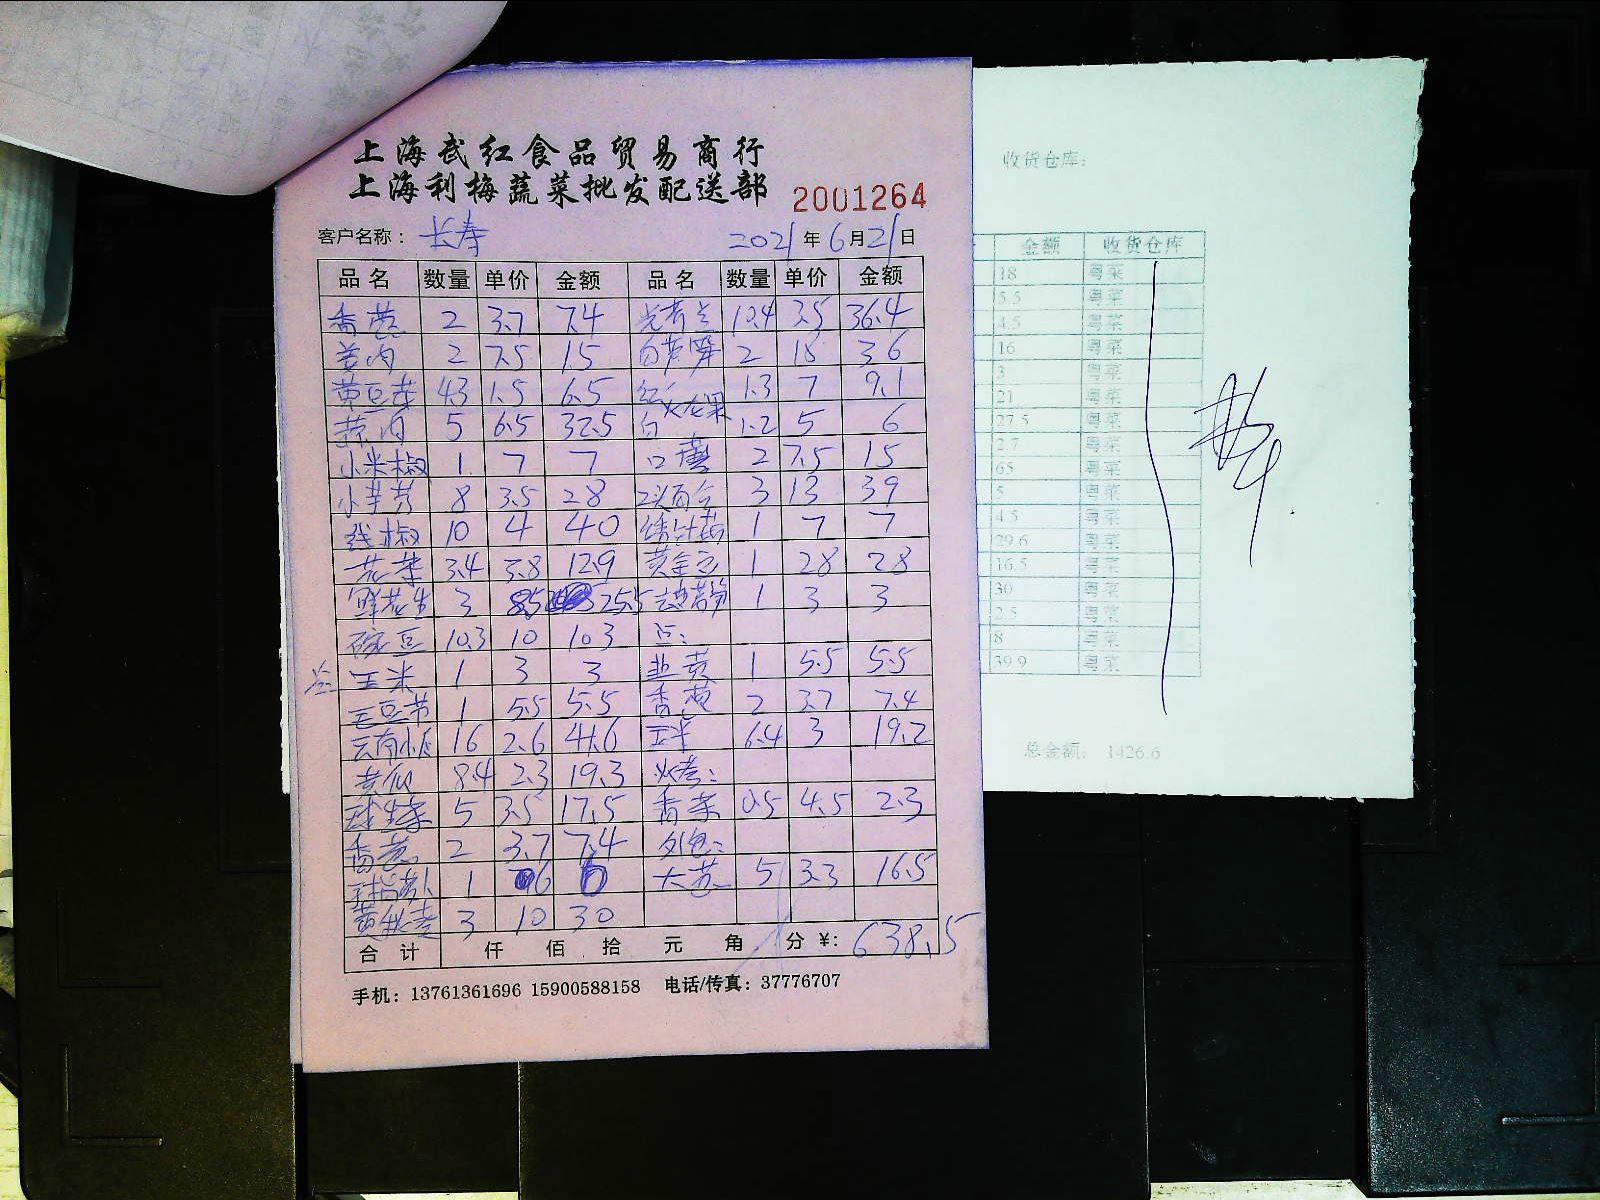 上海武红食品贸易商行
上海利梅蔬菜批发配送部
2001264
客户名称： 长寿 2021年6月21日
品名 数量 单价 金额 品名 数量 单价 金额
香葱 2 3.7 7.4 10.4 3.5 36.4
姜肉 2 7.5 15 白芦笋 2 18 36
黄豆芽 4.3 1.5 6.5 红火龙果 1.3 7 9.1
蒜肉 5 6.5 32.5 白 1.2 5 6
小米椒 1 7 7 口蘑 2 7.5 15
小芋艿 8 3.5 28 百合 3 13 39
线椒 10 4 40 1 7 7
花菜 3.4 3.8 12.9 黄金 1 28 28
鲜花生 3 8.5 25.5 1 3 3
豌豆 10.3 10 103 点：
玉米 1 3 3 韭黄 1 5.5 5.5
毛豆节 1 5.5 5.5 香葱 2 3.7 7.4
云南小瓜 16 2.6 41.6 玉米 6.4 3 19.2
黄瓜 8.4 2.3 19.3 火考：
球生菜 5 3.5 17.5 香菜 0.5 4.5 2.3
香葱 2 3.7 7.4 外包：
1 6 6 大葱 5 3.3 16.5
黄秋葵 3 10 30
合计 仟 佰 拾 元 角 分 ¥: 638.5
手机：13761361696 15900588158 电话/传真：37776707
收货仓库：
金额 收货仓库
18 粤菜
5.5 粤菜
4.5 粤菜
16 粤菜
3 粤菜
21 粤菜
27.5 粤菜
2.7 粤菜
65 粤菜
5 粤菜
4.5 粤菜
29.6 粤菜
16.5 粤菜
30 粤菜
2.5 粤菜
8 粤菜
39.9 粤菜
总金额： 1426.6